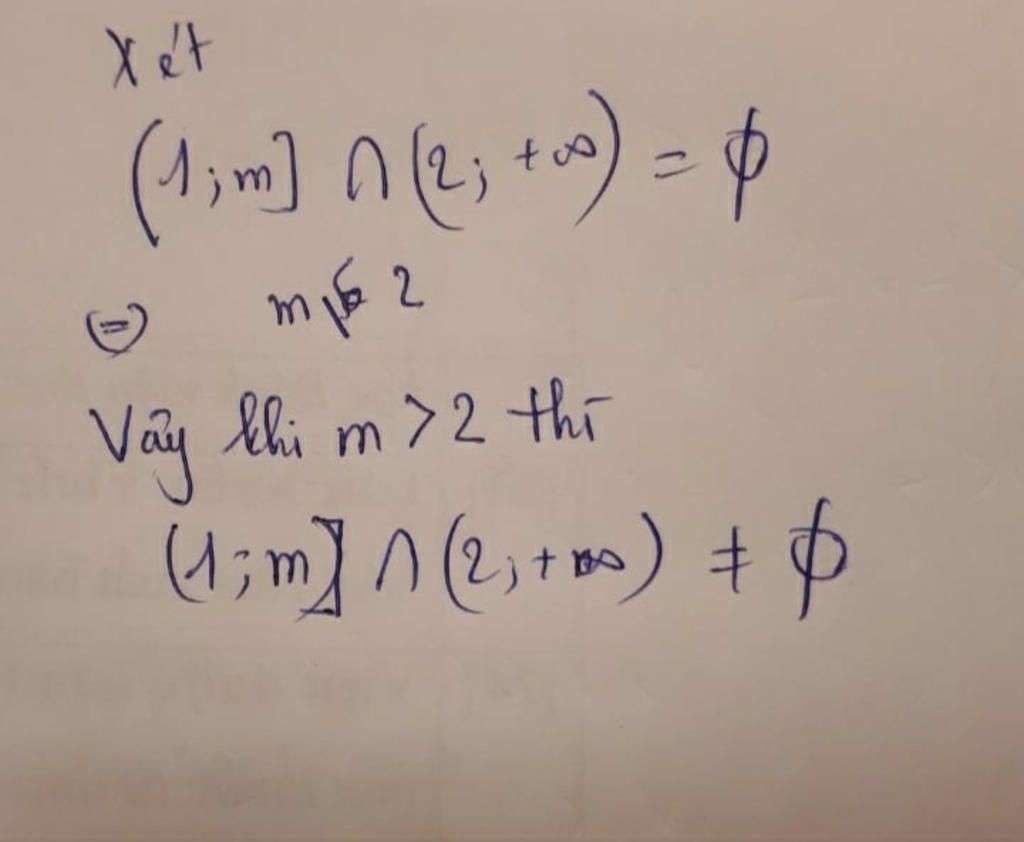 Xét
(1;m] ∩ (2; +∞) = ϕ
⇔ m ≤ 2
Vậy khi m > 2 thì
(1;m] ∩ (2;+∞) ≠ ϕ